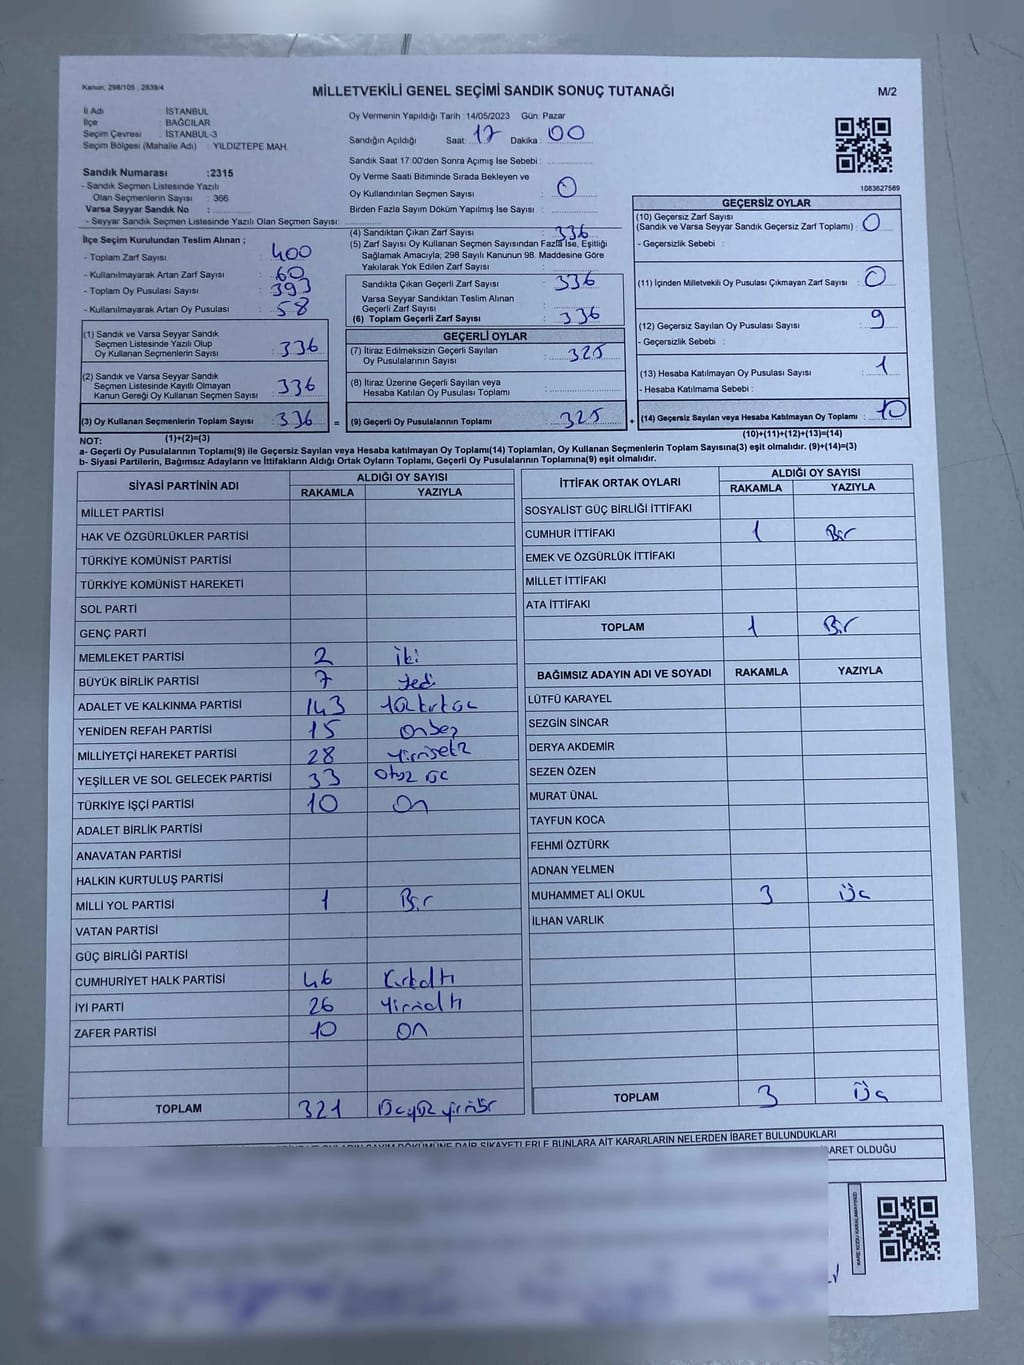 Kanun: 298/105 , 2839/4
MİLLETVEKİLİ GENEL SEÇİMİ SANDIK SONUÇ TUTANAĞI
M/2
İl Adı : İSTANBUL
İlçe : BAĞCILAR
Seçim Çevresi : İSTANBUL-3
Seçim Bölgesi (Mahalle Adı) : YILDIZTEPE MAH.
Oy Vermenin Yapıldığı Tarih :14/05/2023 Gün: Pazar
Sandığın Açıldığı Saat: 17 Dakika : 00
Sandık Saat 17.00'den Sonra Açımış İse Sebebi :
Oy Verme Saati Bitiminde Sırada Bekleyen ve
Oy Kullandırılan Seçmen Sayısı : 0
Birden Fazla Sayım Döküm Yapılmış İse Sayısı :
1083627589
Sandık Numarası :2315
- Sandık Seçmen Listesinde Yazılı
Olan Seçmenlerin Sayısı : 366
Varsa Seyyar Sandık No :
- Seyyar Sandık Seçmen Listesinde Yazılı Olan Seçmen Sayısı:
İlçe Seçim Kurulundan Teslim Alınan ;
- Toplam Zarf Sayısı : 400
- Kullanılmayarak Artan Zarf Sayısı : 60
- Toplam Oy Pusulası Sayısı : 393
- Kullanılmayarak Artan Oy Pusulası : 58
(1) Sandık ve Varsa Seyyar Sandık
Seçmen Listesinde Yazılı Olup
Oy Kullanan Seçmenlerin Sayısı : 336
(2) Sandık ve Varsa Seyyar Sandık
Seçmen Listesinde Kayıtlı Olmayan
Kanun Gereği Oy Kullanan Seçmen Sayısı : 336
(3) Oy Kullanan Seçmenlerin Toplam Sayısı : 336 =
(1)+(2)=(3)
(4) Sandıktan Çıkan Zarf Sayısı : 336
(5) Zarf Sayısı Oy Kullanan Seçmen Sayısından Fazla İse, Eşitliği
Sağlamak Amacıyla; 298 Sayılı Kanunun 98. Maddesine Göre
Yakılarak Yok Edilen Zarf Sayısı :
Sandıkta Çıkan Geçerli Zarf Sayısı : 336
Varsa Seyyar Sandıktan Teslim Alınan
Geçerli Zarf Sayısı :
(6) Toplam Geçerli Zarf Sayısı : 336
GEÇERLİ OYLAR
(7) İtiraz Edilmeksizin Geçerli Sayılan
Oy Pusulalarının Sayısı : 325
(8) İtiraz Üzerine Geçerli Sayılan veya
Hesaba Katılan Oy Pusulası Toplamı :
(9) Geçerli Oy Pusulalarının Toplamı : 325 +
GEÇERSİZ OYLAR
(10) Geçersiz Zarf Sayısı
(Sandık ve Varsa Seyyar Sandık Geçersiz Zarf Toplamı) : 0
- Geçersizlik Sebebi :
(11) İçinden Milletvekili Oy Pusulası Çıkmayan Zarf Sayısı : 0
(12) Geçersiz Sayılan Oy Pusulası Sayısı : 9
- Geçersizlik Sebebi :
(13) Hesaba Katılmayan Oy Pusulası Sayısı : 1
- Hesaba Katılmama Sebebi :
(14) Geçersiz Sayılan veya Hesaba Katılmayan Oy Toplamı : 10
(10)+(11)+(12)+(13)=(14)
NOT:
a- Geçerli Oy Pusulalarının Toplamı(9) ile Geçersiz Sayılan veya Hesaba katılmayan Oy Toplamı(14) Toplamları, Oy Kullanan Seçmenlerin Toplam Sayısına(3) eşit olmalıdır. (9)+(14)=(3)
b- Siyasi Partilerin, Bağımsız Adayların ve İttifakların Aldığı Ortak Oyların Toplamı, Geçerli Oy Pusulalarının Toplamına(9) eşit olmalıdır.
SİYASİ PARTİNİN ADI ALDIĞI OY SAYISI
RAKAMLA YAZIYLA
MİLLET PARTİSİ
HAK VE ÖZGÜRLÜKLER PARTİSİ
TÜRKİYE KOMÜNİST PARTİSİ
TÜRKİYE KOMÜNİST HAREKETİ
SOL PARTİ
GENÇ PARTİ
MEMLEKET PARTİSİ 2 iki
BÜYÜK BİRLİK PARTİSİ 7 Yedi
ADALET VE KALKINMA PARTİSİ 143
YENİDEN REFAH PARTİSİ 15 onbeş
MİLLİYETÇİ HAREKET PARTİSİ 28 yirmisekiz
YEŞİLLER VE SOL GELECEK PARTİSİ 33 Otuz üç
TÜRKİYE İŞÇİ PARTİSİ 10 On
ADALET BİRLİK PARTİSİ
ANAVATAN PARTİSİ
HALKIN KURTULUŞ PARTİSİ
MİLLİ YOL PARTİSİ 1 Bir
VATAN PARTİSİ
GÜÇ BİRLİĞİ PARTİSİ
CUMHURİYET HALK PARTİSİ 46 Kırkaltı
İYİ PARTİ 26 Yirmialtı
ZAFER PARTİSİ 10 on
TOPLAM 321 Üçyüz yirmibir
İTTİFAK ORTAK OYLARI ALDIĞI OY SAYISI
RAKAMLA YAZIYLA
SOSYALİST GÜÇ BİRLİĞİ İTTİFAKI
CUMHUR İTTİFAKI 1 Bir
EMEK VE ÖZGÜRLÜK İTTİFAKI
MİLLET İTTİFAKI
ATA İTTİFAKI
TOPLAM 1 Bir
BAĞIMSIZ ADAYIN ADI VE SOYADI RAKAMLA YAZIYLA
LÜTFÜ KARAYEL
SEZGİN SİNCAR
DERYA AKDEMİR
SEZEN ÖZEN
MURAT ÜNAL
TAYFUN KOCA
FEHMİ ÖZTÜRK
ADNAN YELMEN
MUHAMMET ALİ OKUL 3 Üç
İLHAN VARLIK
TOPLAM 3 Üç
SAYIM DÖKÜMÜNE DAİR ŞİKAYETLERLE BUNLARA AİT KARARLARIN NELERDEN İBARET BULUNDUKLARI
BARET OLDUĞU
KARE KODU KARALAMAYINIZ!